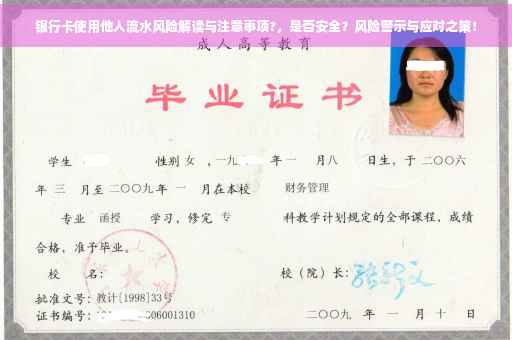 银行卡使用他人流水风险解读与注意事项?，是否安全？风险警示与应对之策！
成人高等教育
毕业证书
学生 性别 女 ，一九 年 一 月 八 日生，于 二〇〇六
年 三 月至 二〇〇九 年 一 月在本校 财务管理
专业 函授 学习，修完 专 科教学计划规定的全部课程，成绩
合格，准予毕业。
校 名： 校（院）长：
批准文号：教计[1998]33号
证书编号： 06001310 二〇〇九 年 一 月 十 日